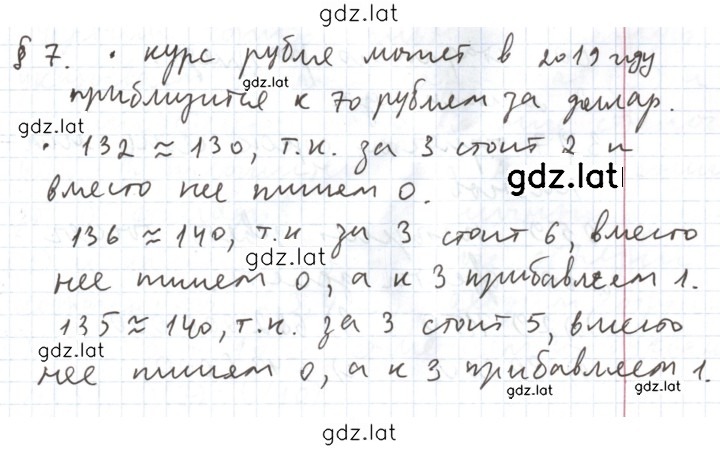 gdz.lat
§ 7. • курс рубля может в 2019 году
gdz.lat
приблизится к 70 рублям за доллар.
gdz.lat
• 132 ≈ 130, т.к. за 3 стоит 2 и
вместо нее пишем 0.
gdz.lat
136 ≈ 140, т.к за 3 стоит 6, вместо
gdz.lat
нее пишем 0, а к 3 прибавляем 1.
135 ≈ 140, т.к. за 3 стоит 5, вместо
gdz.lat
нее пишем 0, а к 3 прибавляем 1.
gdz.lat gdz.lat
gdz.lat